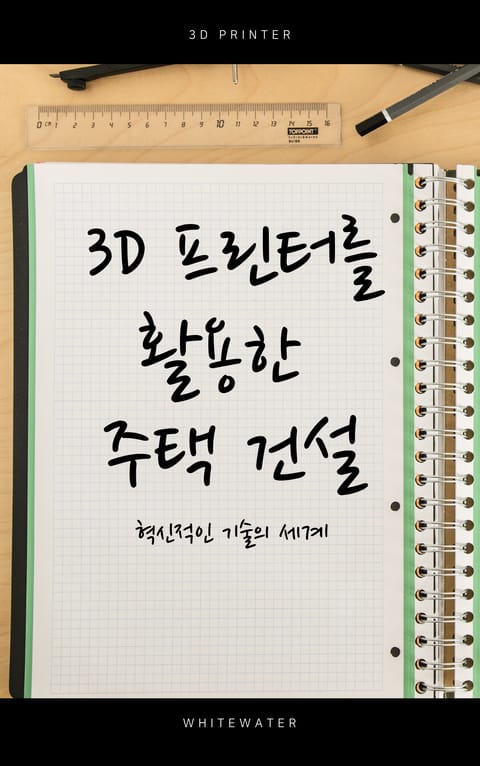 3D PRINTER
0 CM 1 2 3 4 5 6 7 8 9 10 11 12 13 14 15 16
TOPPOINT
3D 프린터를
활용한
주택 건설
혁신적인 기술의 세계
WHITEWATER